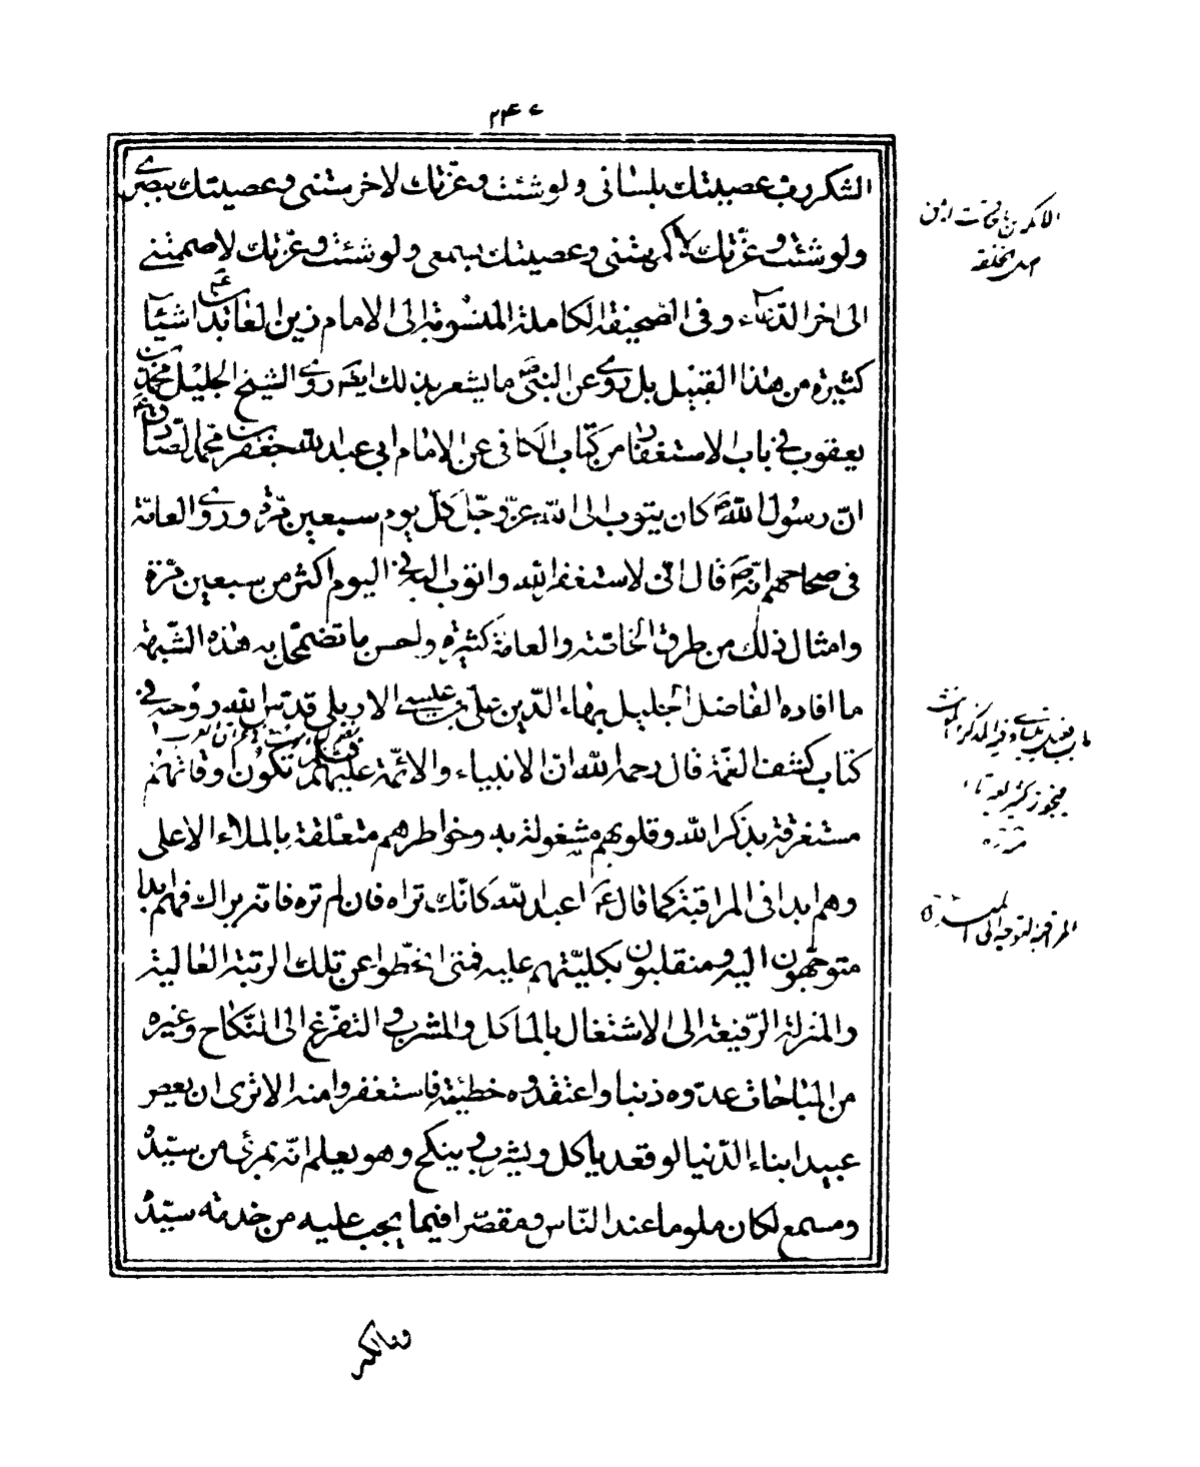 الشكر رب عصيتك بلساني ولو شئت وعزتك لاخرستني وعصيتك ببصري
ولو شئت وعزّتك لاكمهتني وعصيتك بسمعي ولو شئت وعزتك لاصممتني
الى اخر الدّعاء وفى الصحيفة الكاملة المنسوبة الى الامام زين العابدين ع اشياء
كثيرة من هذا القبيل بل روى عن النبي ص ما يشعر بذلك ايضا روى الشيخ الجليل محمد بن
يعقوب في باب الاستغفار من كتاب الكافى عن الامام ابى عبد الله جعفر بن محمد الصّادق ع
انّ رسول الله ص كان يتوب الى الله عزّ وجلّ كلّ يوم سبعين مرّة وروى العامّة
فى صحاحهم انّه ص قال انّى لاستغفر الله واتوب اليه في اليوم اكثر من سبعين مرّة
وامثال ذلك من طرق الخاصّة والعامّة كثيرة واحسن ما تضمحلّ به هذه الشّبهة
ما افاده الفاضل الجليل بهاء الدّين علىّ بن عيسى الاربلى قدّس الله روحه في
كتاب كشف الغمّة قال رحمه الله ان الانبياء والائمّة عليهم السّلم تكون اوقاتهم
مستغرقة بذكر الله وقلوبهم مشغولة به وخواطرهم متعلّقة بالملاء الاعلى
وهم ابدا فى المراقبة كما قال ع اعبد الله كانّك تراه فان لم تره فانه يراك فهم ابدا
متوجّهون اليه ومنقلبون بكليّتهم عليه فمتى انحطّوا عن تلك الرتبة العالية
والمنزلة الرّفيعة الى الاشتغال بالمأكل والمشرب والتفرّغ الى النّكاح وغيره
من المباحات عدّوه ذنبا واعتقدوه خطيئة فاستغفروا منه الا ترى ان بعض
عبيد ابناء الدّنيا لو قعد ياكل ويشرب وينكح وهو يعلم انّه بمرئى من سيّده
ومسمع لكان ملوما عند النّاس ومقصّرا فيما يجب عليه من خدمة سيّده